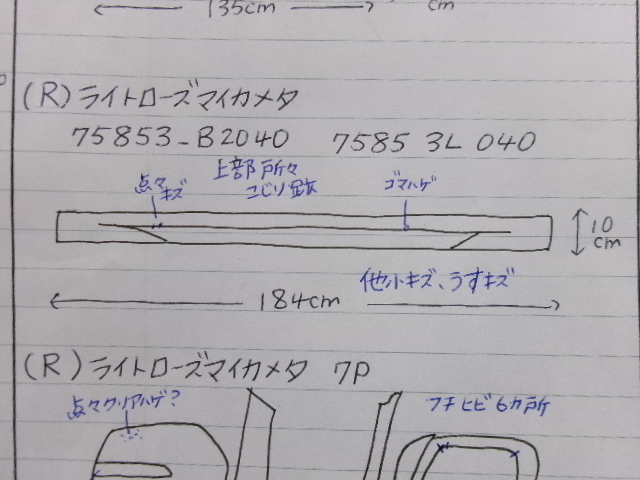 135cm
cm
(R)ライトローズマイカメタ
75853-B2040 75853L040
上部所々
点々
キズ
こじり跡
ゴマハゲ
10
cm
184cm
他小キズ、うすキズ
(R)ライトローズマイカメタ 7P
点々クリアハゲ?
フチヒビ6カ所